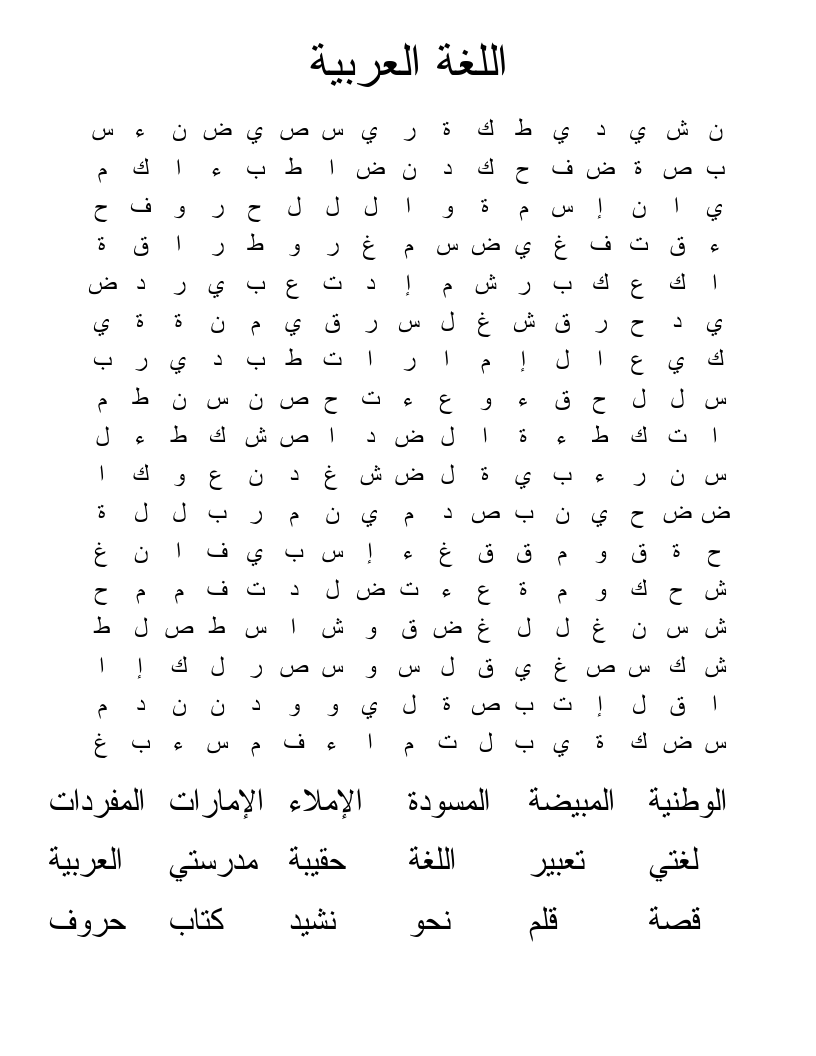 اللغة العربية
ن ش ي د ي ط ك ة ر ي س ص ي ض ن ء س
ب ص ة ض ف ح ك د ن ض ا ط ب ء ا ك م
ي ا ن إ س م ة و ا ل ل ل ح ر و ف ح
ء ق ت ف غ ي ض س م غ ر و ط ر ا ق ة
ا ك ع ك ب ر ش م إ د ت ع ب ي ر د ض
ي د ح ر ق ش غ ل س ر ق ي م ن ة ة ي
ك ي ع ا ل إ م ا ر ا ت ط ب د ي ر ب
س ل ل ح ق ء و ع ء ت ح ص ن س ن ط م
ا ت ك ط ء ة ا ل ض د ا ص ش ك ط ء ل
س ن ر ء ب ي ة ل ض ش غ د ن ع و ك ا
ض ض ح ي ن ب ص د م ي ن م ر ب ل ل ة
ح ة ق و م ق ق غ ء إ س ب ي ف ا ن غ
ش ح ك و م ة ع ء ت ض ل د ت ف م م ح
ش س ن غ ل ل غ ض ق و ش ا س ط ص ل ط
ش ك س ص غ ي ق ل س و س ص ر ل ك إ ا
ا ق ل إ ت ب ص ة ل ي و و د ن ن د م
س ض ك ة ي ب ل ت م ا ء ف م س ء ب غ
الوطنية المبيضة المسودة الإملاء الإمارات المفردات
لغتي تعبير اللغة حقيبة مدرستي العربية
قصة قلم نحو نشيد كتاب حروف